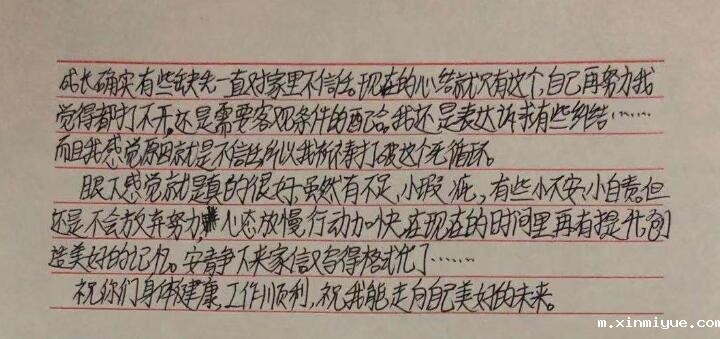 成长确实有些缺失一直对家里不信任。现在的心结就只有这个,自己再努力我
觉得都打不开,还是需要客观条件的配合。我还是表达诉求有些纠结……
而且我感觉原因就是不信任,所以我祈祷打破这个无循环。
眼下感觉就是真的很好,虽然有不足,小瑕疵,有些小不安,小自责。但
还是不会放弃努力,心态放慢,行动加快,在现在的时间里再有提升,创
造美好的记忆。安静下来家信又写得格式化了……
祝你们身体健康,工作顺利,祝我能走向自己美好的未来。
m.xinmiyue.com